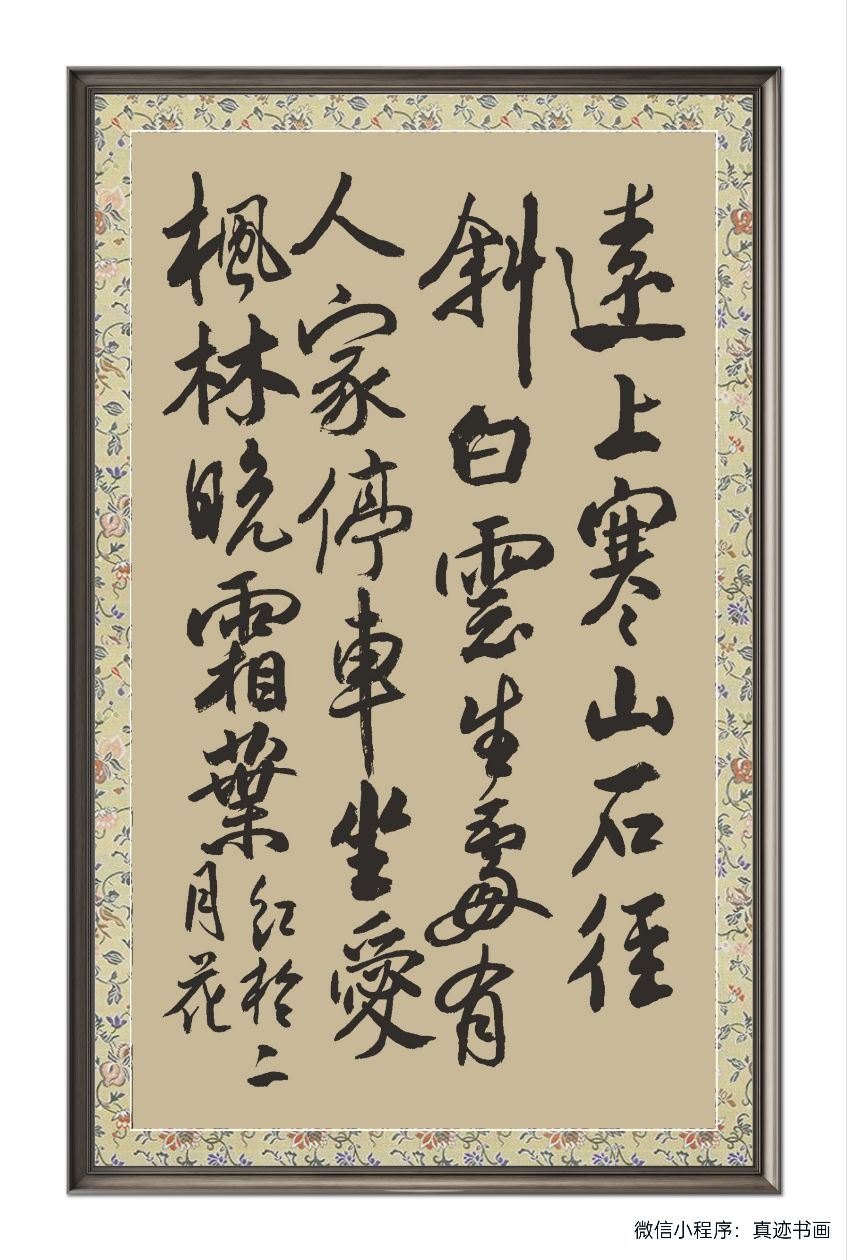 遠上寒山石徑
斜白雲生處有
人家停車坐愛
楓林晚霜葉紅於二
月花
微信小程序：真迹书画